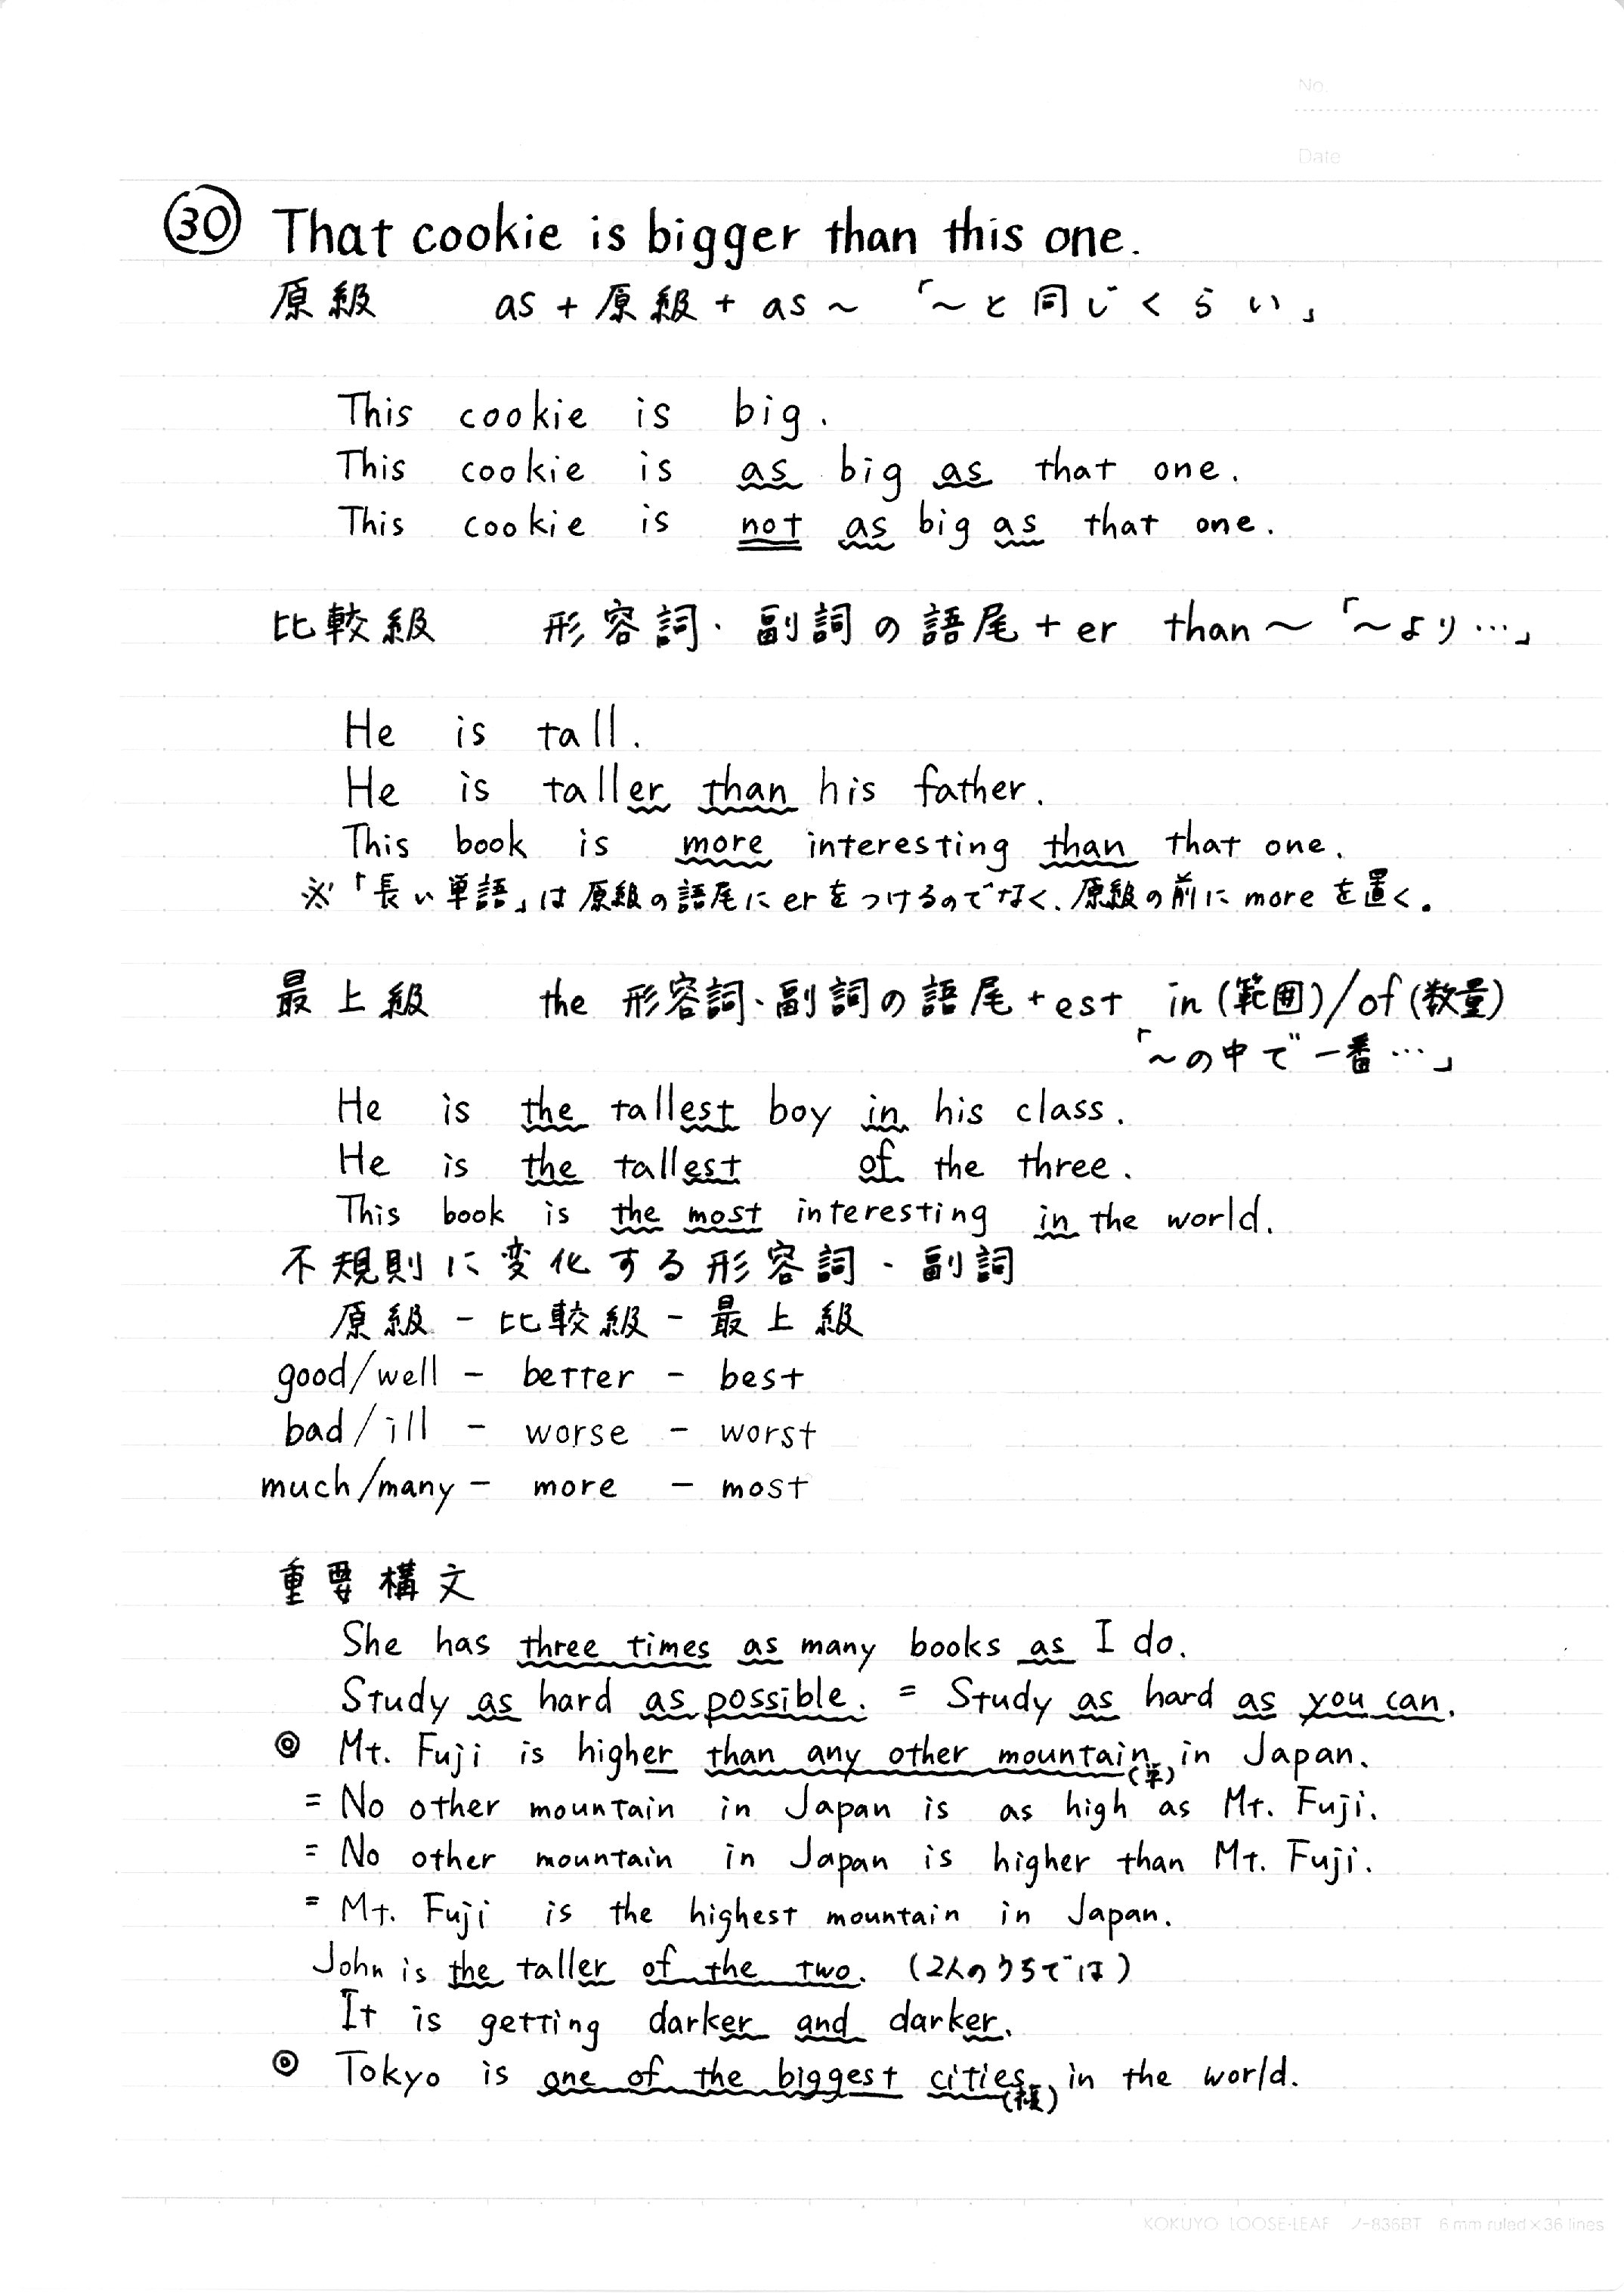 No.
Date
㉚ That cookie is bigger than this one.
原級 as + 原級 + as ~ 「~と同じくらい」
This cookie is big.
This cookie is as big as that one.
This cookie is not as big as that one.
比較級 形容詞・副詞の語尾 + er than ~ 「~より…」
He is tall.
He is taller than his father.
This book is more interesting than that one.
※「長い単語」は原級の語尾にerをつけるのでなく、原級の前にmoreを置く。
最上級 the 形容詞・副詞の語尾 + est in (範囲)/of (数量)
「~の中で一番…」
He is the tallest boy in his class.
He is the tallest of the three.
This book is the most interesting in the world.
不規則に変化する形容詞・副詞
原級 - 比較級 - 最上級
good/well - better - best
bad/ill - worse - worst
much/many - more - most
重要構文
She has three times as many books as I do.
Study as hard as possible. = Study as hard as you can.
◎ Mt. Fuji is higher than any other mountain(単) in Japan.
= No other mountain in Japan is as high as Mt. Fuji.
= No other mountain in Japan is higher than Mt. Fuji.
= Mt. Fuji is the highest mountain in Japan.
John is the taller of the two. (2人のうちでは)
It is getting darker and darker.
◎ Tokyo is one of the biggest cities(複) in the world.
KOKUYO LOOSE-LEAF ノ-836BT 6 mm ruled×36 lines